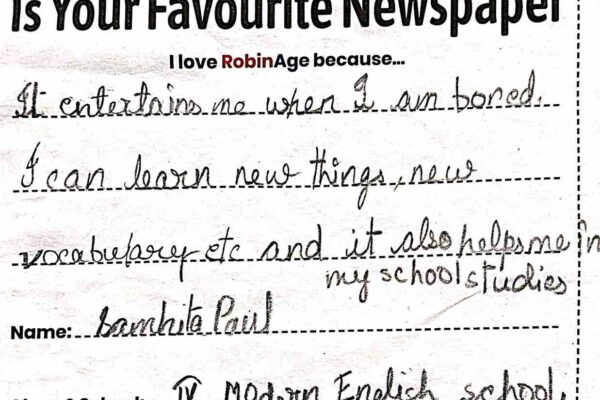 Is Your Favourite Newspaper
I love RobinAge because...
It entertains me when I am bored.
I can learn new things, new
vocabulary etc and it also helps me in
my school studies
Name: Samhita Paul
IV Modern English school,